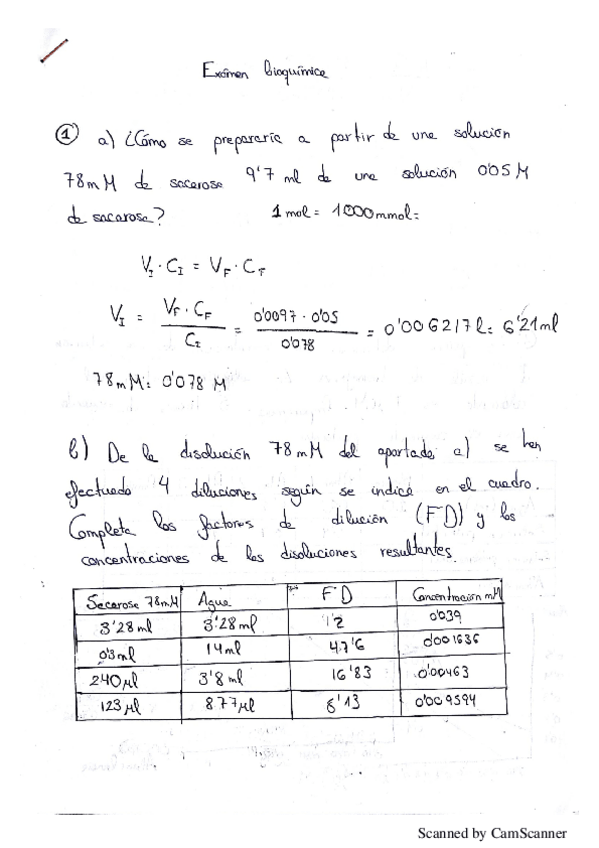 Exámen Bioquímica
① a) ¿Cómo se prepararía a partir de una solución
78mM de sacarosa 9'7 ml de una solución 0'05 M
de sacarosa? 1 mol = 1000mmol=
V_I · C_I = V_F · C_F
V_I = V_F · C_F / C_I = 0'0097 · 0'05 / 0'078 = 0'006217 l = 6'21ml
78mM = 0'078 M
b) De la disolución 78mM del apartado a) se han
efectuado 4 diluciones según se indica en el cuadro.
Completa los factores de dilución (FD) y las
concentraciones de las disoluciones resultantes.
Sacarosa 78mM Agua FD Concentración mM
3'28ml 3'28ml 0'039
0'3ml 14ml 47'6 0'001636
240μl 3'8ml 16'83 0'00463
123μl 877μl 8'13 0'009594
Scanned by CamScanner